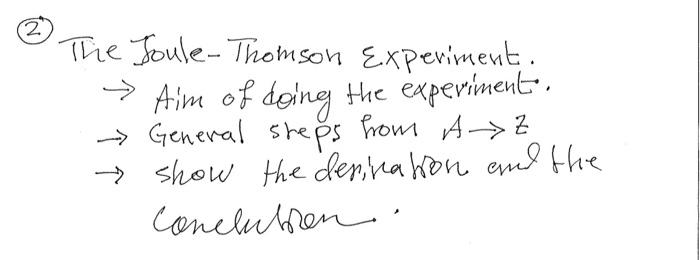 ②
The Joule-Thomson Experiment.
→ Aim of doing the experiment.
→ General steps from A → Z
→ show the derivation and the
Conclution.